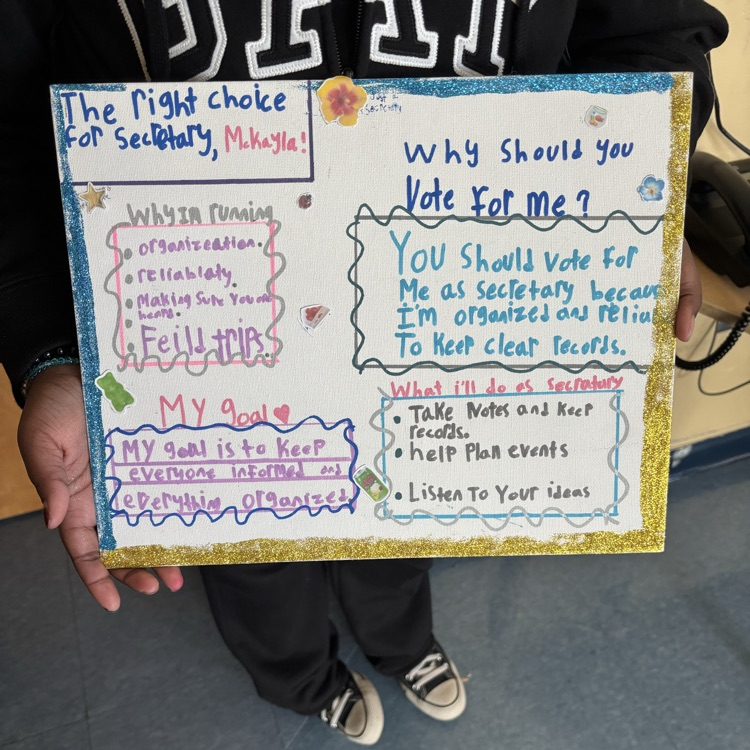 The right choice
for secretary, McKayla!
Why Im running
• organizeation.
• reliablaty.
• Making sure you are
heard.
• Feild trips.
MY goal
MY goal is to keep
everyone informed and
everything organized
Why Should you
Vote for me?
You should vote for
Me as secretary becaus
I'm organized and relia
To keep clear records.
What i'll do as secratary
• Take Notes and keep
records.
• help Plan events
• Listen To Your ideas